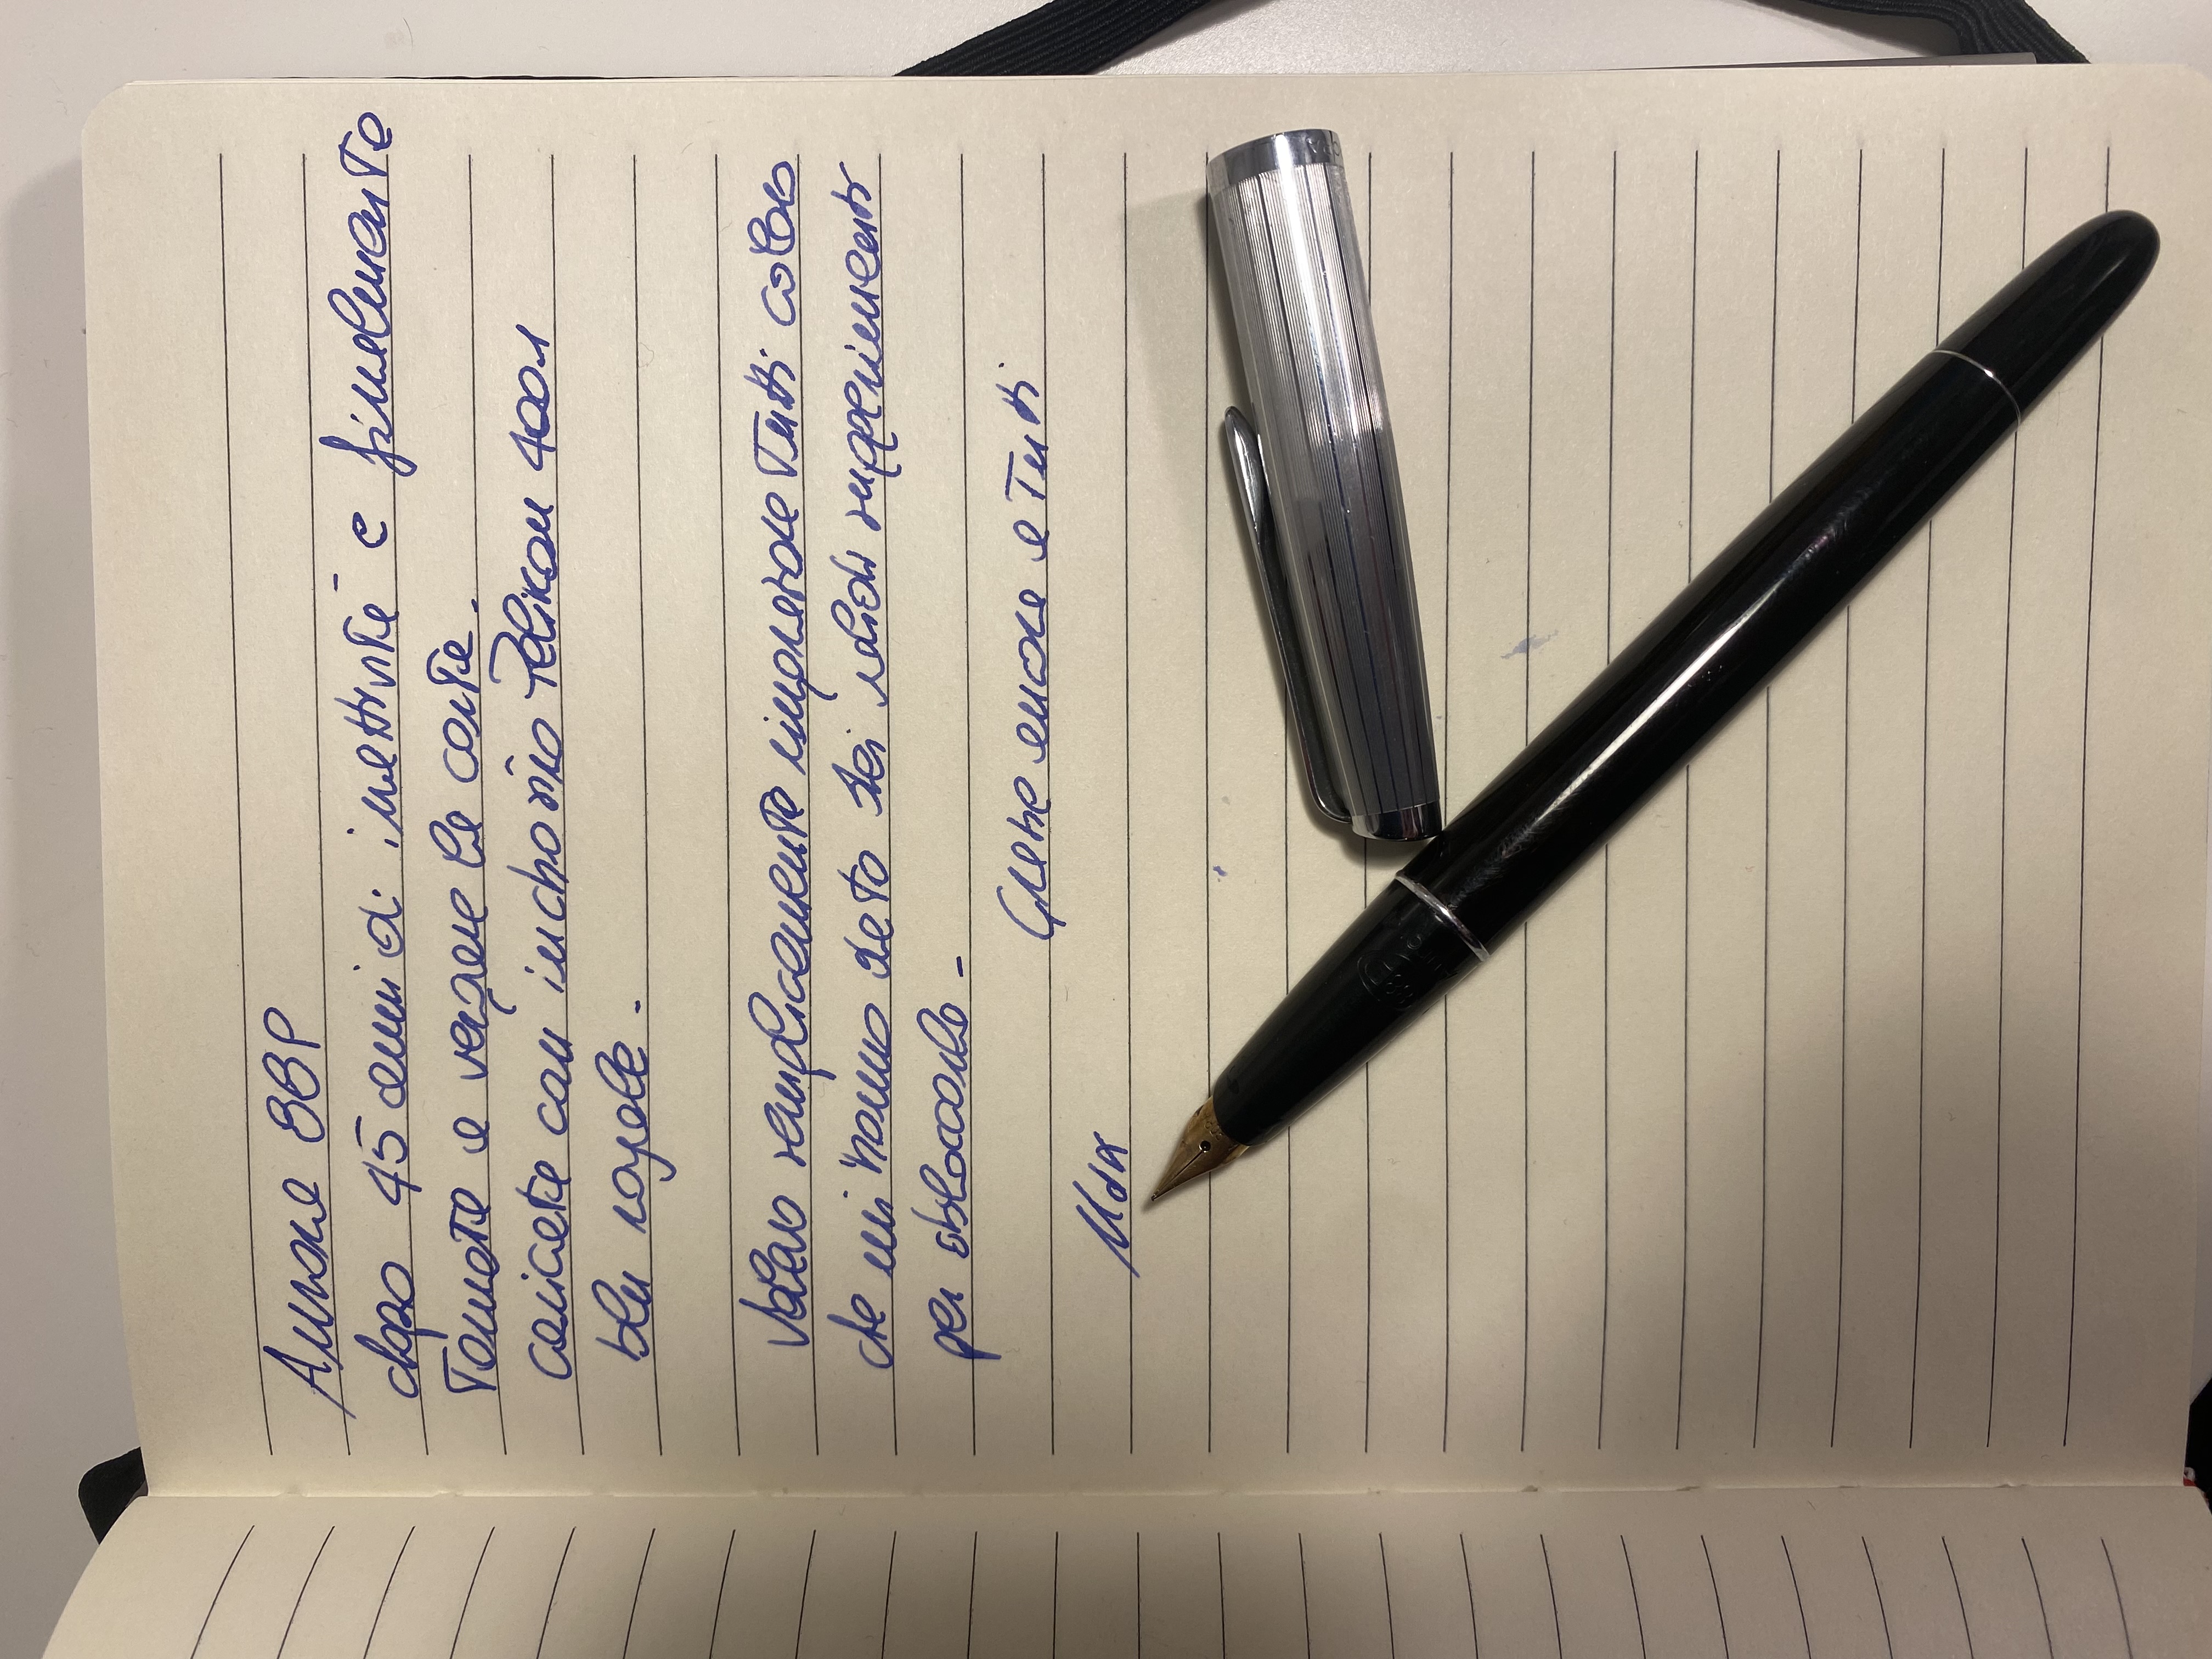 Aurora 88P
dopo 45 anni di inattività è finalmente
Tornata a vergare le carte.
caricata con inchiostro Pelikan 4001
blu royale.
Volevo semplicemente ringraziare Tutti coloro
che mi hanno dato dei validi suggerimenti
per sbloccarla -
Grazie ancora a Tutti